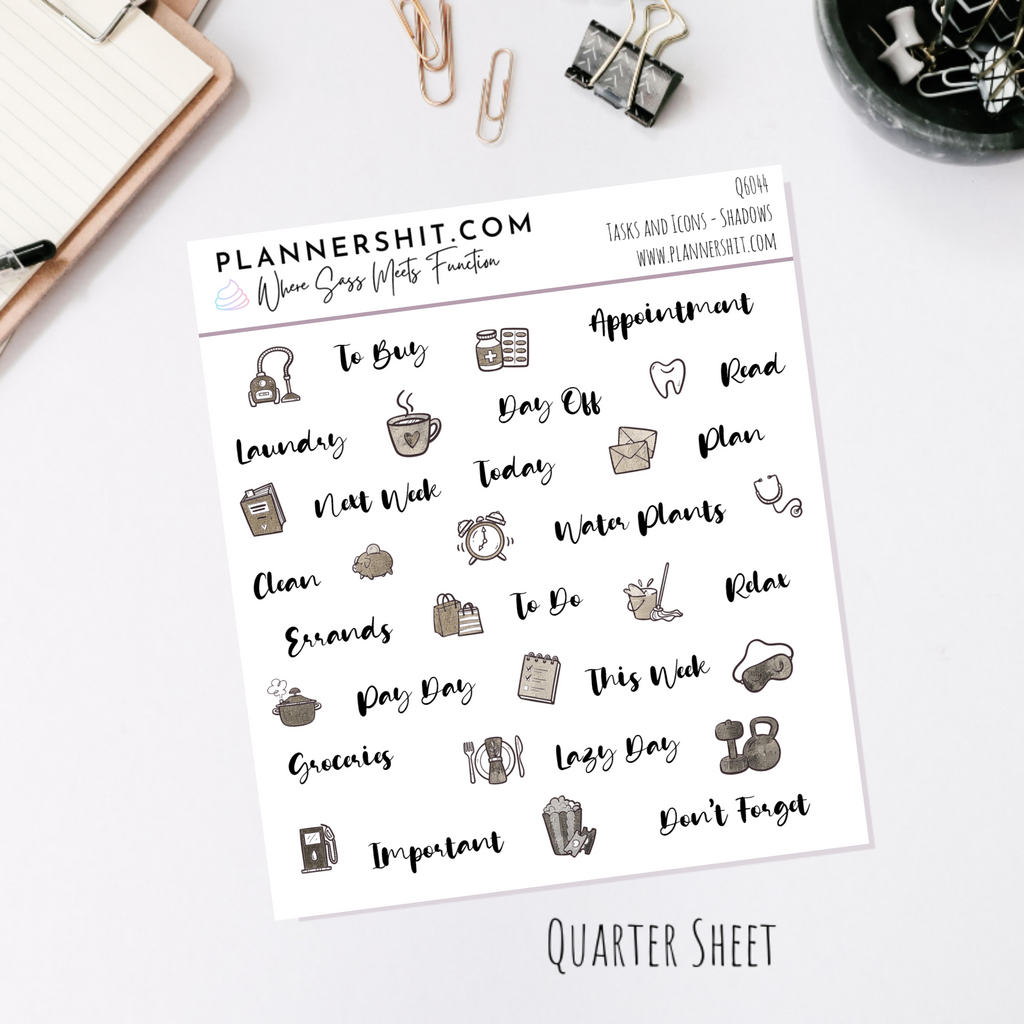 PLANNERSHIT.COM
Where Sass Meets Function
Q6044
Tasks and Icons - Shadows
www.plannershit.com
To Buy
Appointment
Laundry
Day Off
Read
Next Week
Today
Plan
Clean
Water Plants
Errands
To Do
Relax
Pay Day
This Week
Groceries
Lazy Day
Important
Don't Forget
Quarter Sheet